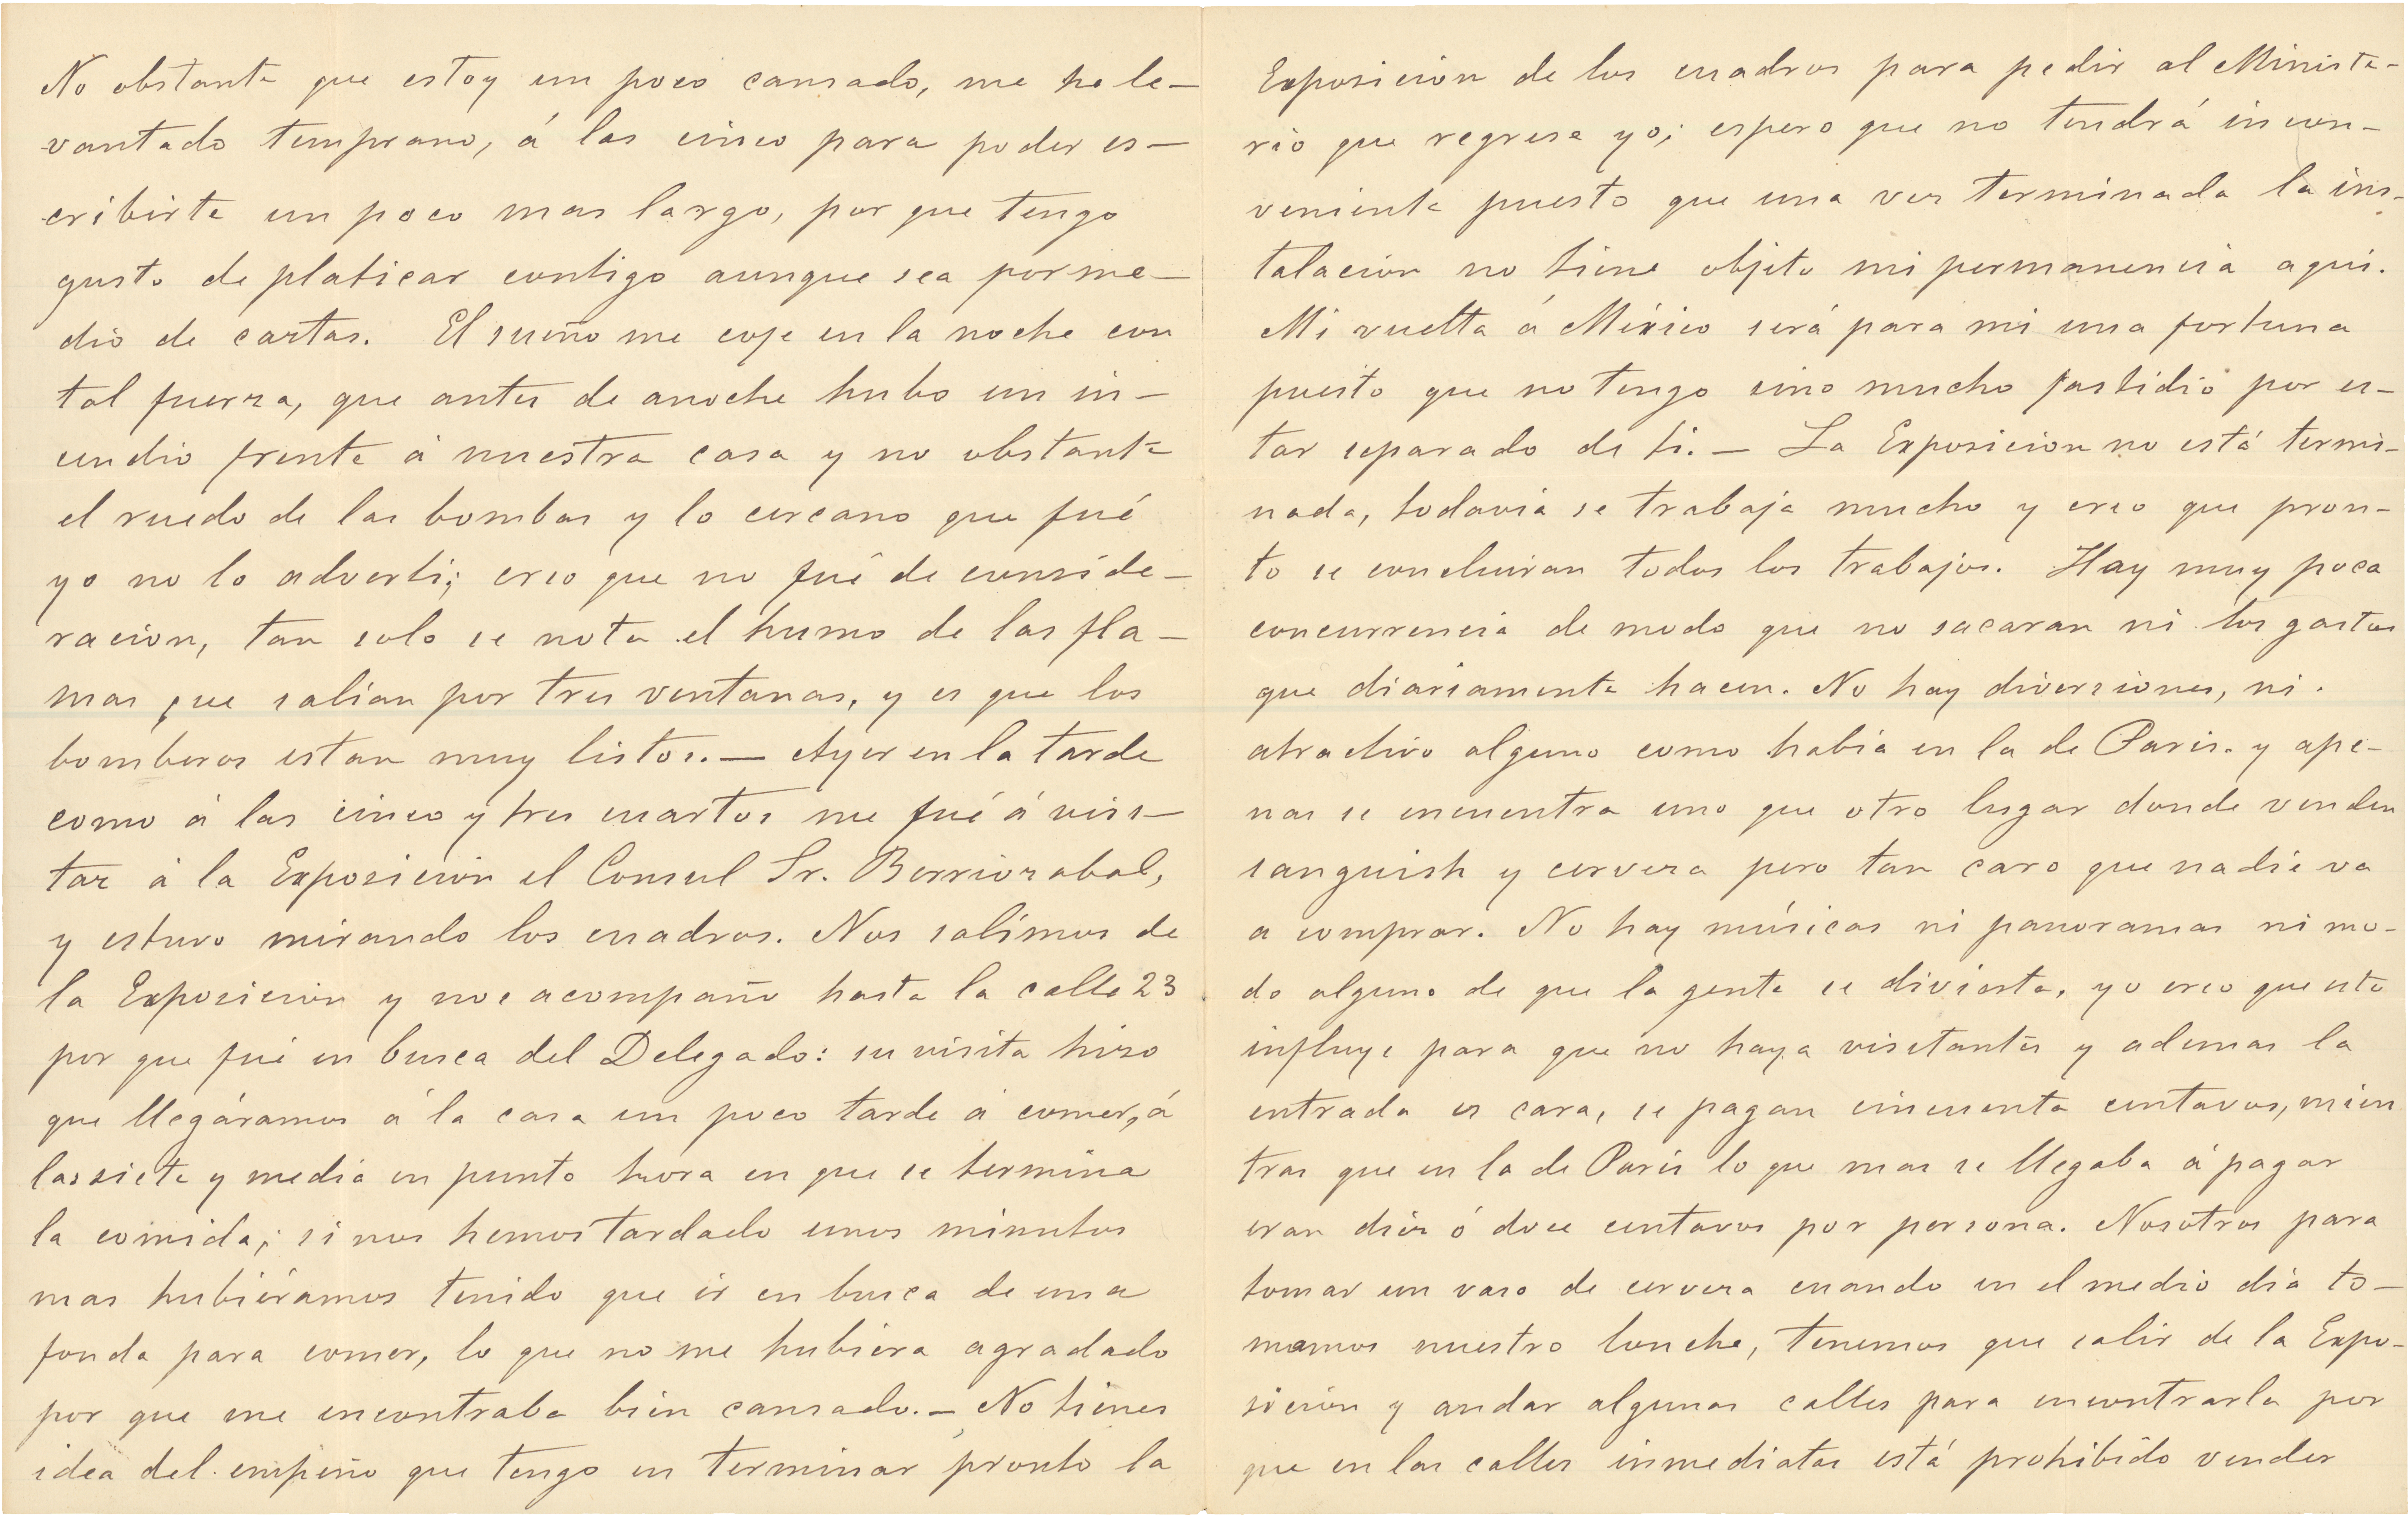 No obstante que estoy un poco cansado, me he le-
vantado temprano, á las cinco para poder es-
cribirte un poco mas largo, por que tengo
gusto de platicar contigo aunque sea por me-
dio de cartas. El sueño me coje en la noche con
tal fuerza, que antes de anoche hubo un in-
cendio frente á nuestra casa y no obstante
el ruedo de las bombas y lo cercano que fué
yo no lo advertí; creo que no fué de conside-
racion, tan solo se nota el humo de las fla-
mas que salian por tres ventanas, y es que los
bomberos estan muy listos. — Ayer en la tarde
como á las cinco y tres cuartos me fué á visi-
tar á la Exposición el Consul Sr. Berriozabal,
y estuvo mirando los cuadros. Nos salímos de
la Exposición y nos acompaño hasta la calle 23
por que fué en busca del Delegado: su visita hizo
que llegáramos á la casa un poco tarde á comer, á
las siete y media en punto hora en que se termina
la comida; si nos hemos tardado unos minutos
mas hubiéramos tenido que ir en busca de una
fonda para comer, lo que no me hubiera agradado
por que me encontraba bien cansado. — No tienes
idea del empeño que tengo en terminar pronto la
Exposición de los cuadros para pedir al Ministe-
rio que regrese yo; espero que no tendrá incon-
veniente puesto que una ves terminada la ins-
talación no tiene objeto mi permanencia aqui.
Mi vuelta á México será para mi una fortuna
puesto que no tengo sino mucho fastidio por es-
tar separado de ti. — La Exposicion no está termi-
nada, todavia se trabaja mucho y creo que pron-
to se concluiran todos los trabajos. Hay muy poca
concurrencia de modo que no sacaran ni los gastos
que diariamente hacen. No hay diversiones, ni
atractivo alguno como había en la de Paris. y ape-
nas se encuentra uno que otro lugar donde venden
sanguish y cerveza pero tan caro que nadie va
a comprar. No hay músicas ni panoramas ni mo-
do alguno de que la gente se divierta, yo creo que esto
influye para que no haya visitantes y ademas la
entrada es cara, se pagan cincuenta centavos, mien
tras que en la de Paris lo que mas se llegaba á pagar
eran diez ó doce centavos por persona. Nosotros para
tomar un vaso de cerveza cuando en el medio dia to-
mamos nuestro lonche, tenemos que salir de la Expo-
sición y andar algunas calles para encontrarla por
que en las calles inmediatas está prohibido vender